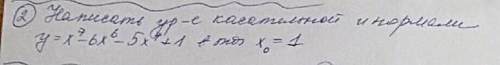 ② Написать ур-е касательной и нормали
y = x⁹ - 6x⁶ - 5x⁴ + 1 в точ x₀ = 1